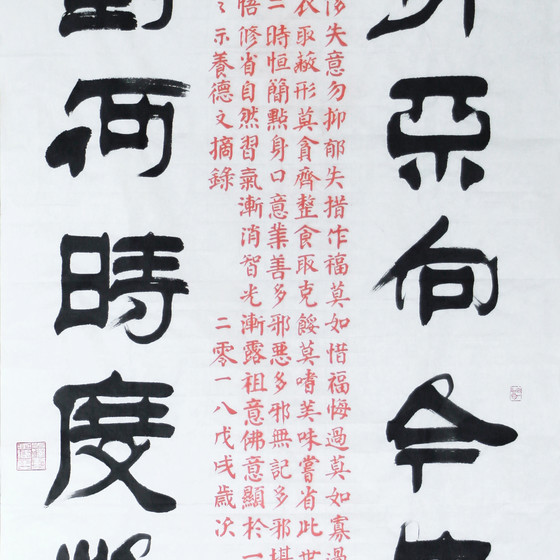 向今
失意勿抑郁失措作福莫如惜福悔過莫如寡過
衣取蔽形莫貪齊整食取克餒莫嗜美味嘗省此世
時恒簡點身口意業善多邪惡多邪無記多邪堪
悟修省自然習氣漸消智光漸露祖意佛意顯於一
示養德文摘錄 二零一八戊戌歲次
何時度